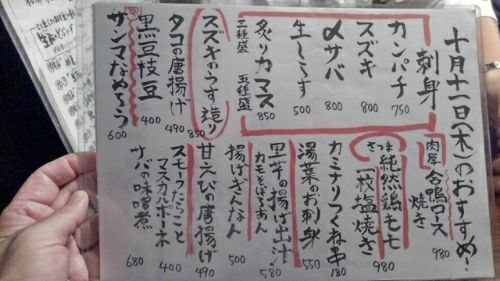 十月十一日(木)のおすすめ!
刺身
カンパチ 750
スズキ 800
〆サバ 800
生しらす 500
炙りカマス 850
三種盛 五種盛
スズキのうす造り 850
タコの唐揚げ 490
黒豆枝豆 400
サンマなめろう 600
肉厚 合鴨ロース焼き 980
さつま純然鶏モモ一枚塩焼き 980
カミナリつくね串 180
湯葉のお刺身 550
里芋の揚げ出汁 カモそぼろあん 580
揚げぎんなん 500
甘えびの唐揚げ 490
スモークたらこと
マスカルポーネ 400
サバの味噌煮 680